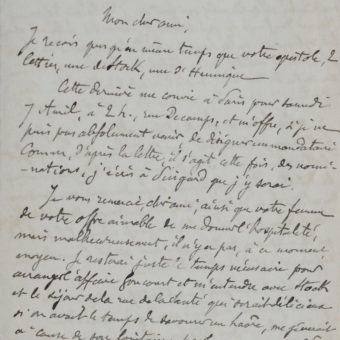 Mon cher ami,
Je reçois presqu'en même temps que votre épistole, 2
lettres, une de Stock, une d'Hennique
Cette dernière me convie à Paris pour samedi
7 Avril, à 2 h., rue Decamps, et m'offre, si je ne
puis pas absolument venir de désigner un mandataire
Comme, d'après la lettre, il s'agit cette fois, des nomi-
nations, j'écris à que j'y serai.
Je vous remercie cher ami, ainsi que votre femme
de votre offre aimable de me donner l'hospitalité,
mais malheureusement, il n'y a pas, à ce moment
moyen. Je resterai juste le temps nécessaire pour
arranger l'affaire Goncourt et m'entendre avec Stock
et le séjour de la rue de la Santé qui serait délicieux
si on avait le temps de savourer un havre, me
à cause de son